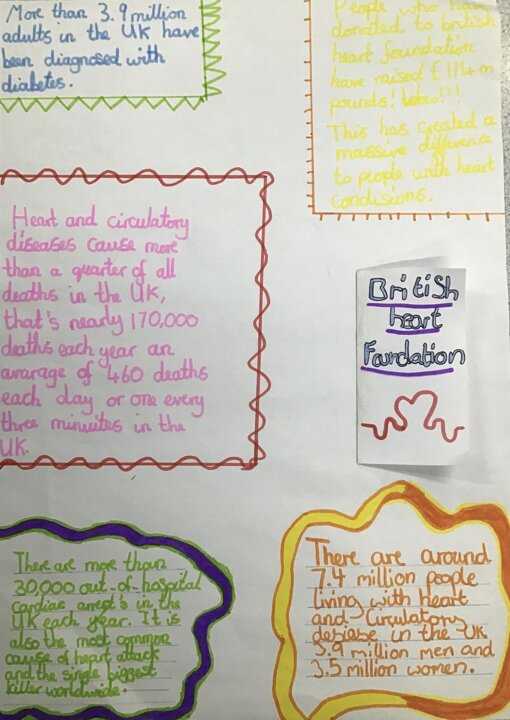 More than 3.9 million
adults in the UK have
been diagnosed with
diabetes.
People who have
donated to british
heart foundation
have raised £114 m
pounds!
This has created a
massive difference
to people with heart
condisions.
Heart and circulatory
diseases cause more
than a quarter of all
deaths in the UK,
that's nearly 170,000
deaths each year an
avarage of 460 deaths
each day or one every
three minuites in the
UK.
British
heart
Foundation
There are more than
30,000 out-of-hospital
cardiac arrest's in the
UK each year. It is
also the most common
cause of heart attack
and the single biggest
killer worldwide.
There are around
7.4 million people
living with heart
and circulatory
in the UK
3.9 million men and
3.5 million women.